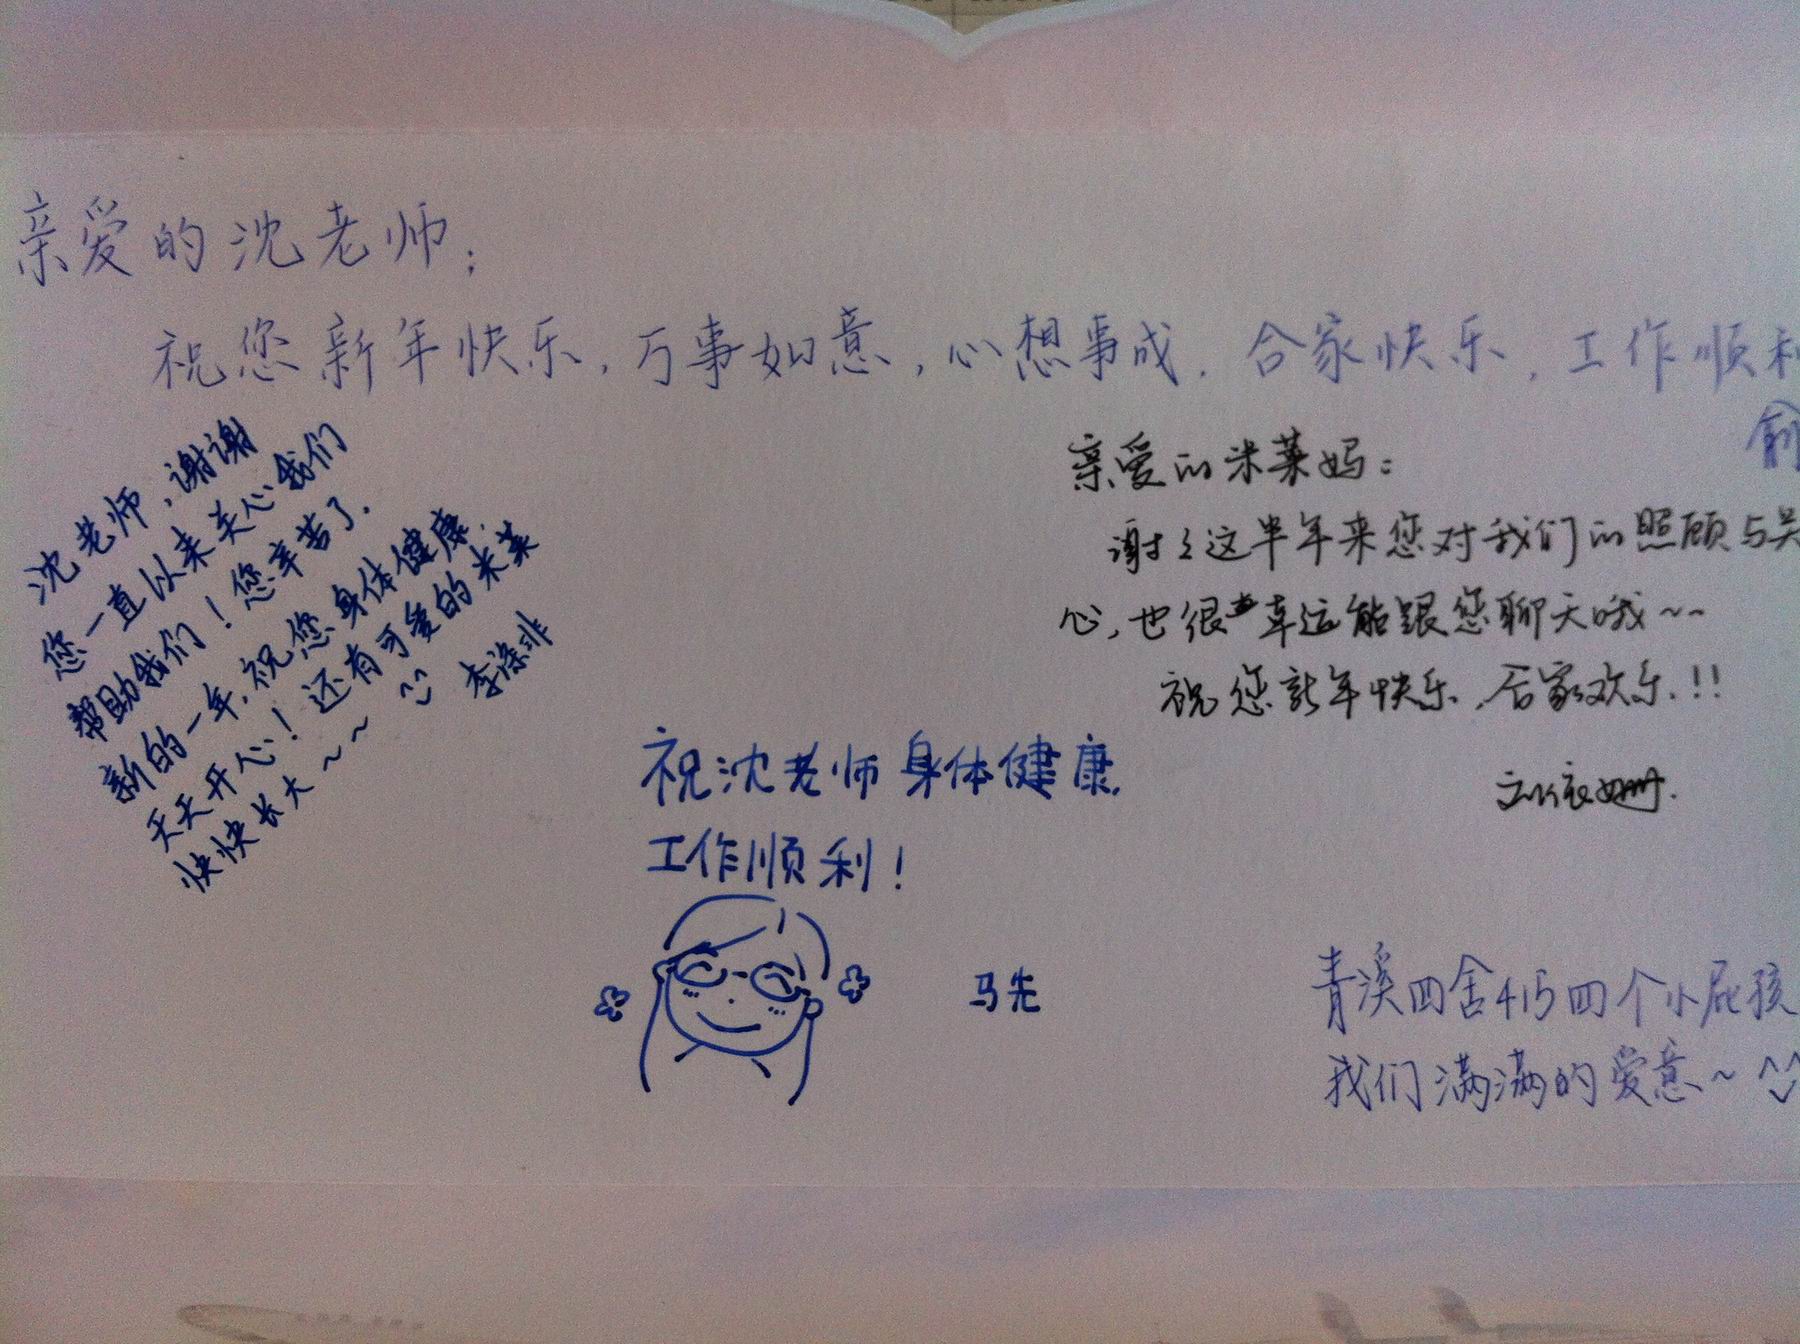 亲爱的沈老师:
祝您新年快乐,万事如意,心想事成,合家快乐,工作顺利
俞
沈老师,谢谢
您一直以来关心我们
帮助我们!您辛苦了.
新的一年,祝您身体健康,
天天开心!还有可爱的米莱
快快长大~~
李涤非
亲爱的米莱妈:
谢谢这半年来您对我们的照顾与关
心,也很幸运能跟您聊天哦~~
祝您新年快乐,合家欢乐.!!
刘依姗.
祝沈老师身体健康,
工作顺利!
马先
青溪四舍415四个小屁孩
我们满满的爱意~